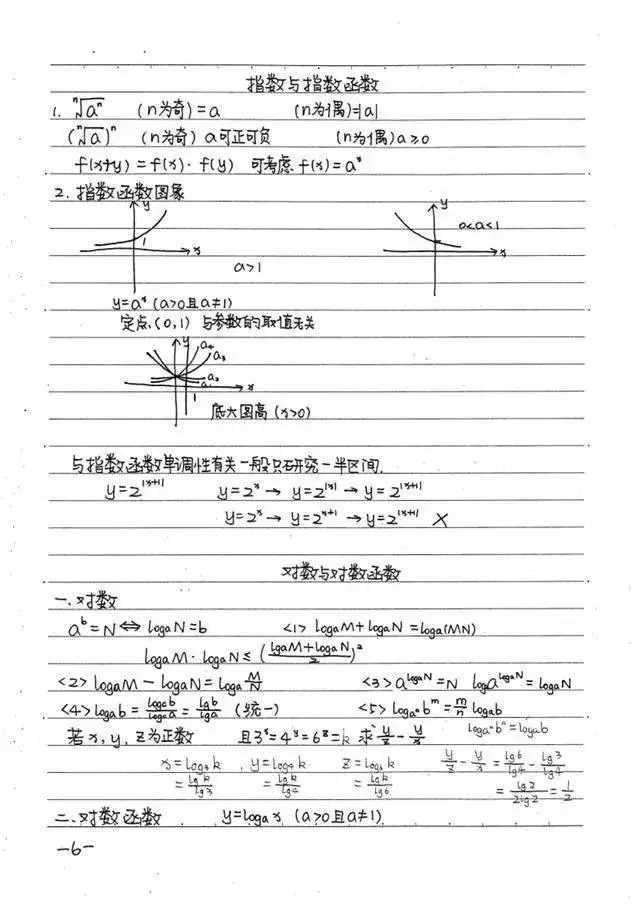 指数与指数函数
1. ⁿ√aⁿ (n为奇)=a (n为偶)=|a|
(ⁿ√a)ⁿ (n为奇) a可正可负 (n为偶) a≥0
f(x+y)=f(x)·f(y) 可考虑 f(x)=aˣ
2. 指数函数图象
y y
1 x 0<a<1 x
a>1
y=aˣ (a>0且a≠1)
定点(0,1) 与参数的取值无关
y a₄ a₃ a₂ a₁ x
1
底大图高(x>0)
与指数函数单调性有关一般只研究一半区间.
y=2^|x+1| y=2ˣ→ y=2^|x| → y=2^|x+1|
y=2ˣ → y=2^x+1 → y=2^|x+1| ×
对数与对数函数
一.对数
aᵇ=N⇔logaN=b <1> logaM+logaN=loga(MN)
logaM·logaN≤(logaM+logaN/2)²
<2> logaM-logaN=loga M/N <3> a^logaN=N loga^logaN=logaN
<4> logab=logcb/logca=lgb/lga (统一) <5> logaⁿbᵐ=m/n logab
logaⁿbⁿ=logab
若x,y,z为正数 且3ˣ=4ʸ=6ᶻ=k 求y/z-y/x
x=log₃k, y=log₄k z=log₆k y/z-y/x=lg6/lg4-lg3/lg4
=lgk/lg3 =lgk/lg4 =lgk/lg6 =lg2/2lg2=1/2
二.对数函数 y=logax (a>0且a≠1)
-6-